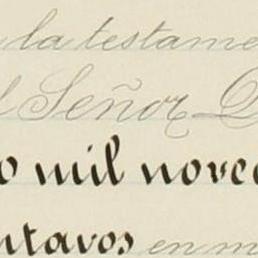 la testame
Señor D
o mil novec
ntavos en m